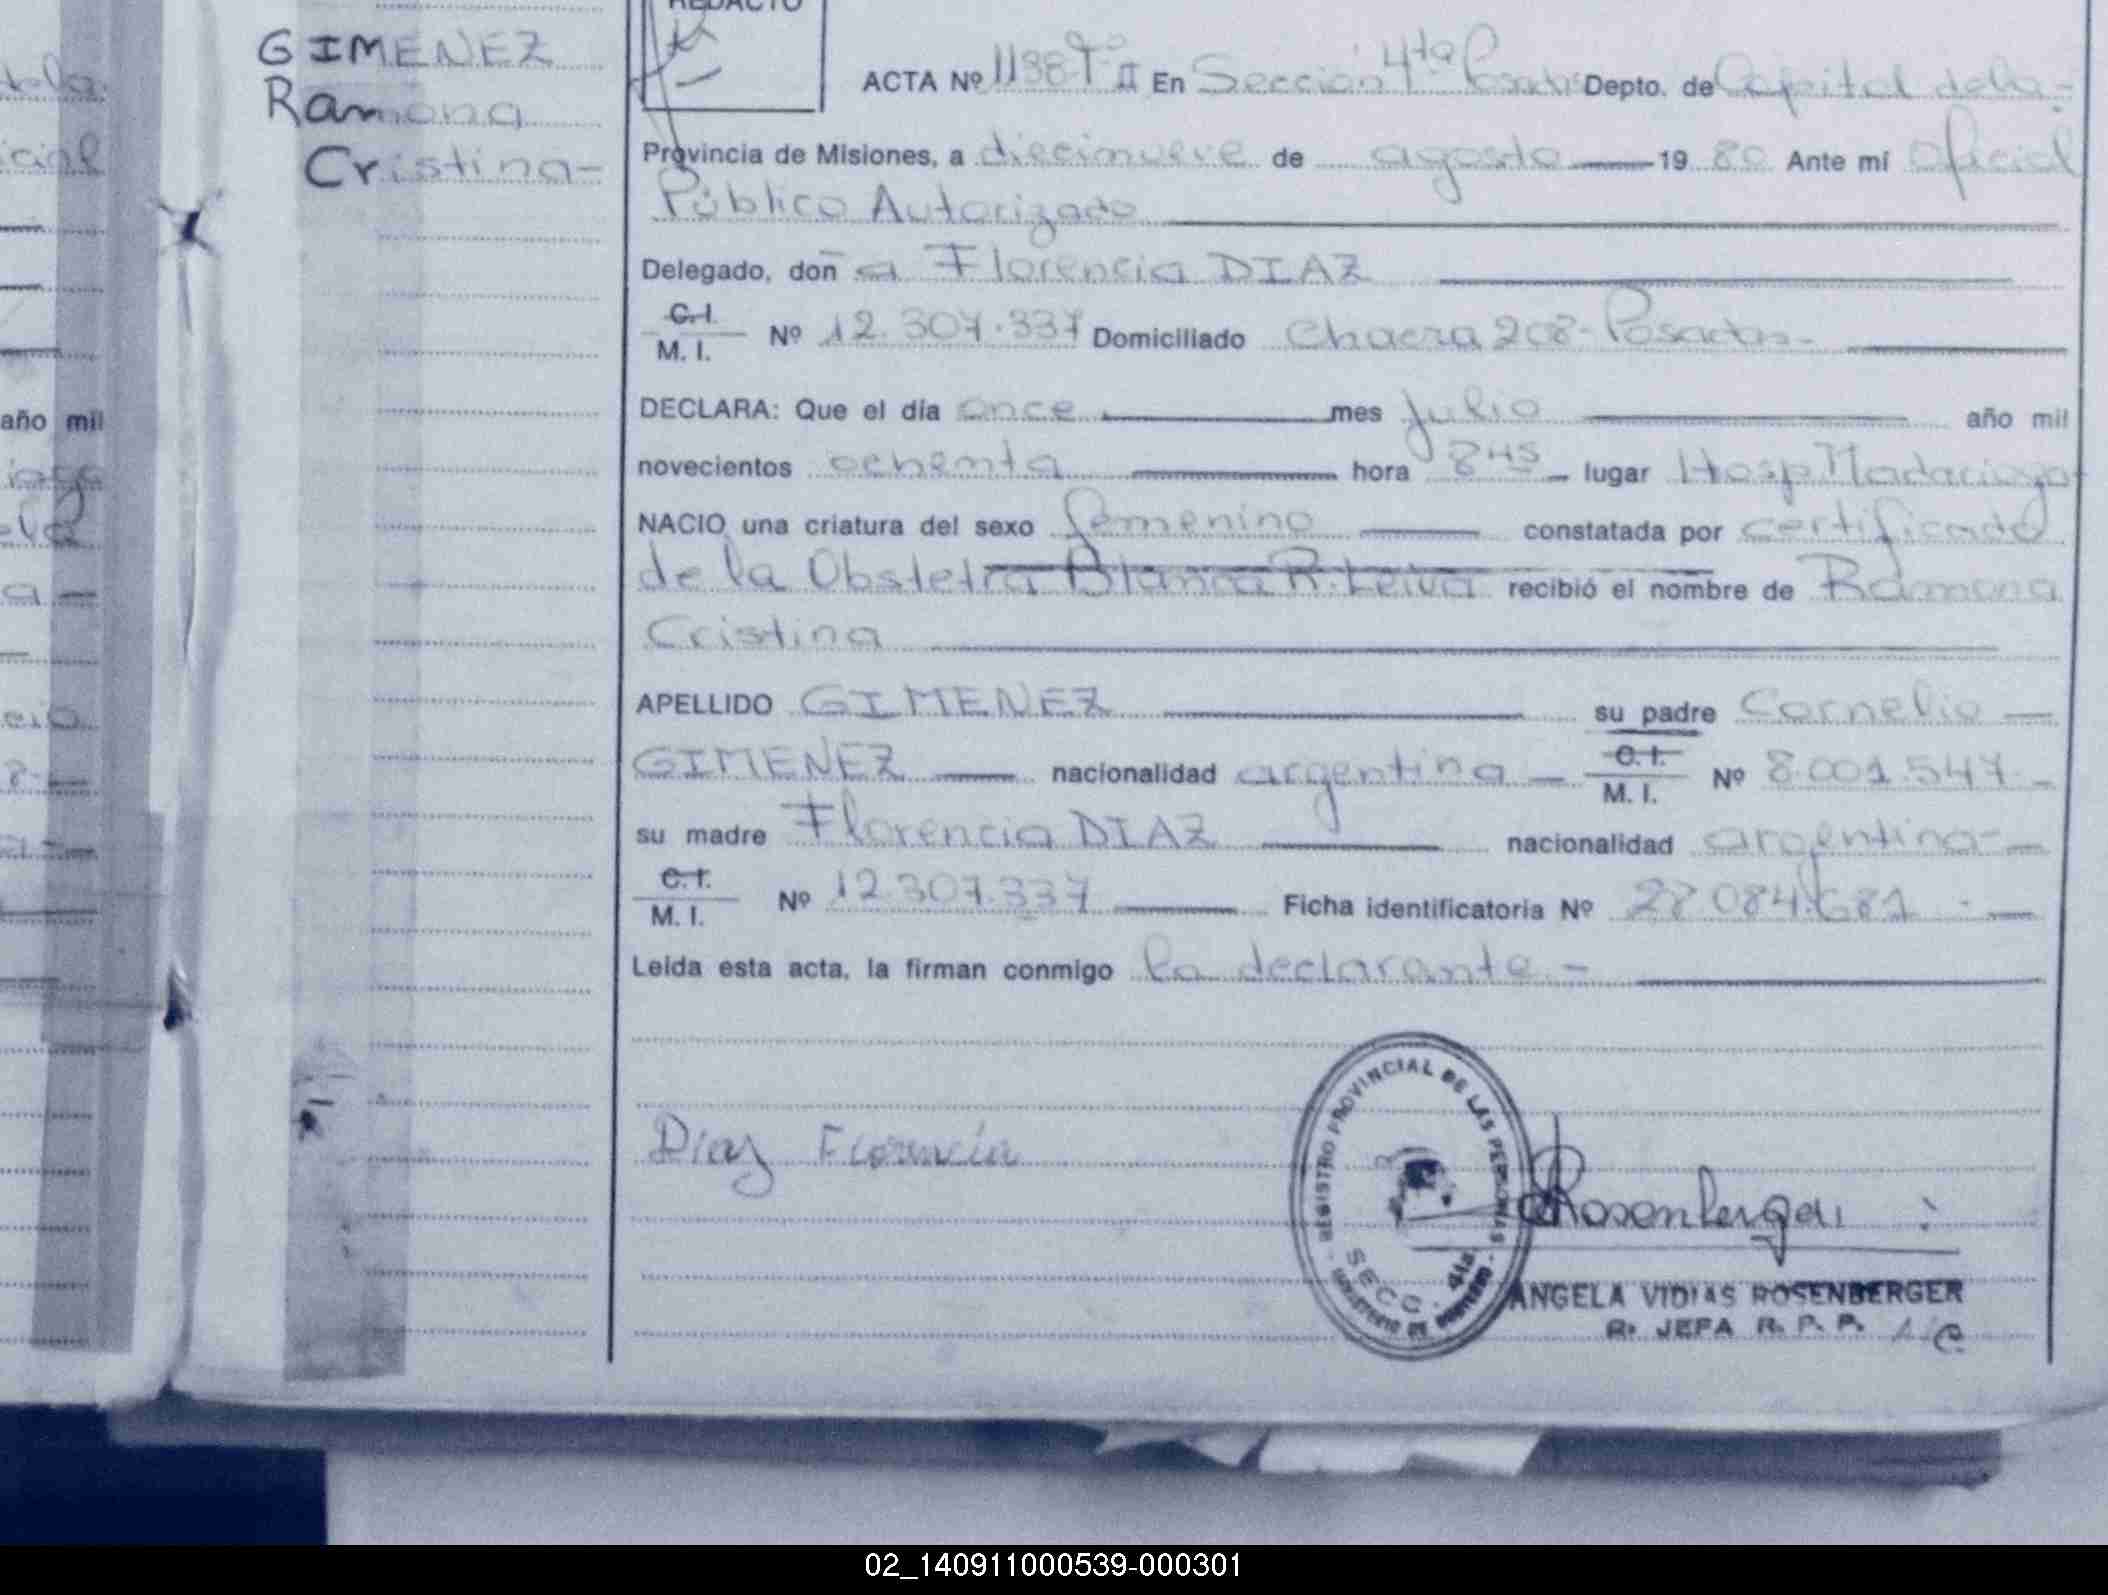 REDACTO
GIMENEZ
Ramona
Cristina-
ACTA Nº 1138 Tº II En Sección 4ta Posadas Depto. de Capital de la-
Provincia de Misiones, a diecinueve de agosto 19 80 Ante mí Oficial
Público Autorizado
Delegado, don a Florencia DIAZ
C.I.
M. I. Nº 12.307.337 Domiciliado Chacra 208-Posadas-
DECLARA: Que el día once mes Julio año mil
novecientos ochenta hora 8 45 lugar Hosp Madariaga
NACIO una criatura del sexo femenino constatada por certificado
de la Obstetra Blanca R. Leiva recibió el nombre de Ramona
Cristina
APELLIDO GIMENEZ su padre Cornelio
GIMENEZ nacionalidad argentina C.I.
M. I. Nº 8.001.547-
su madre Florencia DIAZ nacionalidad argentina-
C.I.
M. I. Nº 12.307.337 Ficha identificatoria Nº 28.084.681
Leída esta acta, la firman conmigo la declarante-
Diaz Florencia
REGISTRO PROVINCIAL DE LAS PERSONAS
SECC. 4ta.
Rosenberger
ANGELA VIDIAS ROSENBERGER
JEFA R. P. P.
año mil
02_140911000539-000301